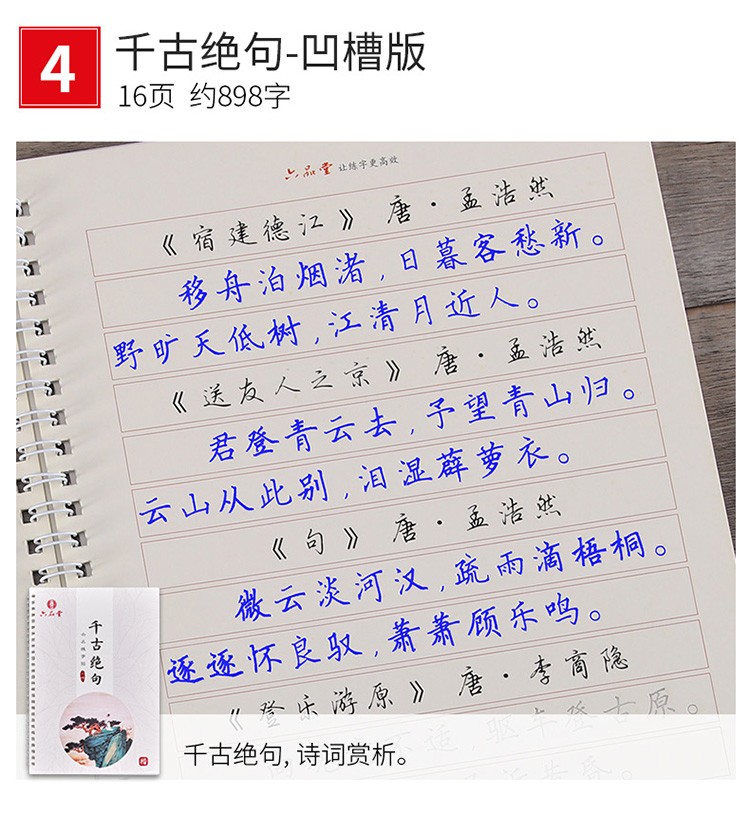 4
千古绝句-凹槽版
16页 约898字
六品堂 让练字更高效
《宿建德江》 唐·孟浩然
移舟泊烟渚,日暮客愁新。
野旷天低树,江清月近人。
《送友人之京》 唐·孟浩然
君登青云去,予望青山归。
云山从此别,泪湿薜萝衣。
《句》 唐·孟浩然
微云淡河汉,疏雨滴梧桐。
逐逐怀良驭,萧萧顾乐鸣。
《登乐游原》 唐·李商隐
不适 驱车登古原。
六品堂
千古绝句
千古绝句,诗词赏析。